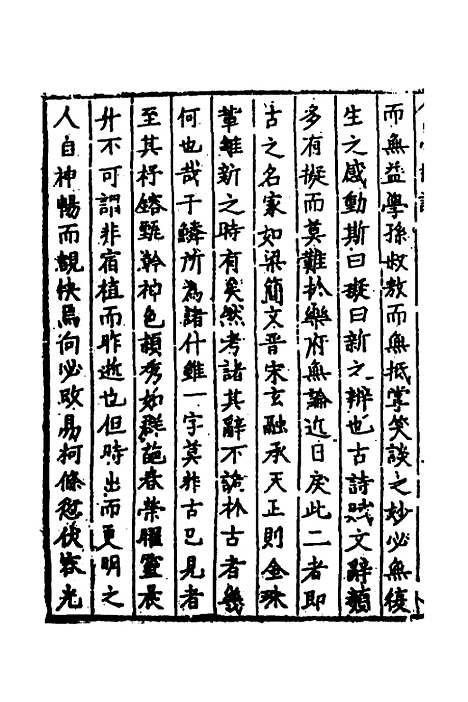 而無益學孫叔敖而無抵掌笑談之妙必無復
生之感動斯曰擬曰新之辨也古詩賤文辭類
多有擬而莫難於樂府無論近日戾此二者即
古之名家如梁簡文晉宋玄融承天正則金珠
輩雖新之時有矣然考諸其辭不詭朴古者幾
何也哉于鱗所為諸什雖一字莫非古已見者
至其杼鎔甄幹神色韻秀如群葩春榮曜靈晨
升不可謂非宿植而昨逝也但時出而更明之
人自神暢而覩快焉向必改易柯條愆伏春光